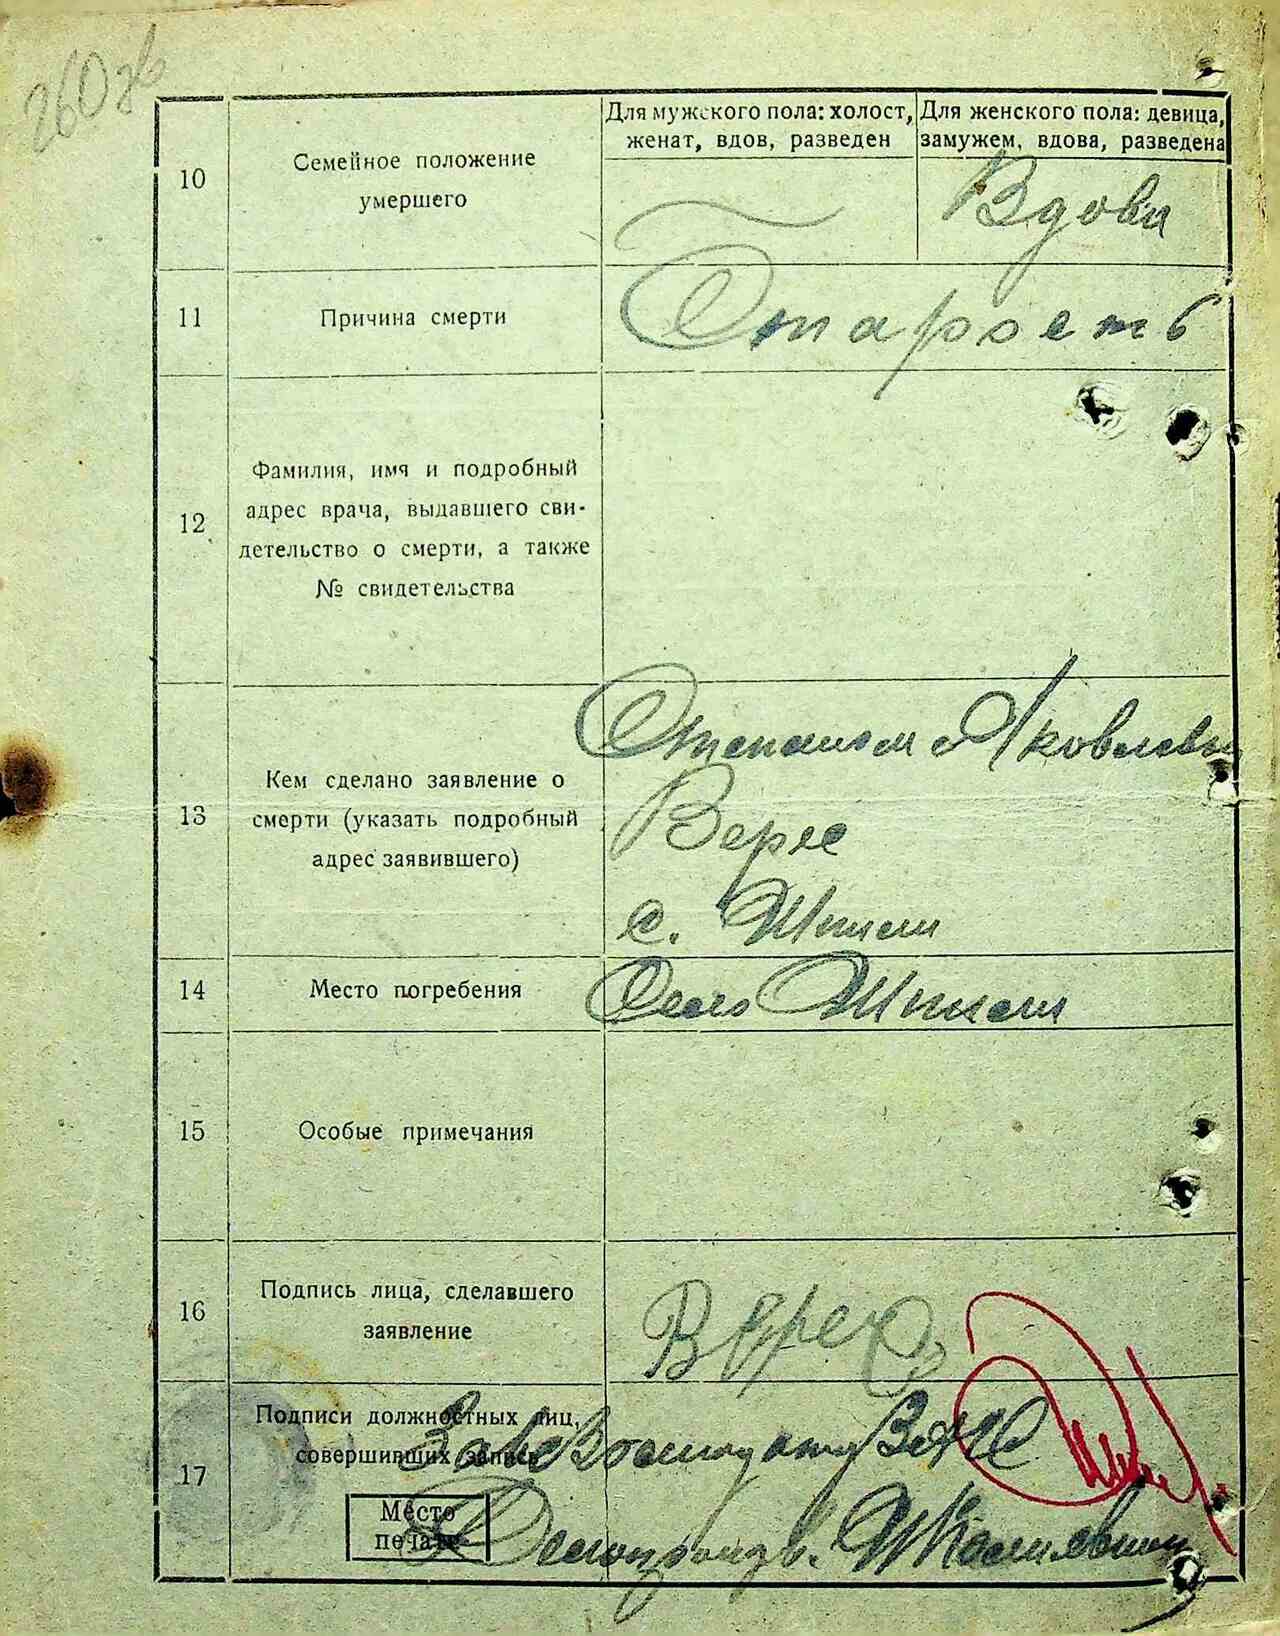 260 зв
Для мужского пола: холост, женат, вдов, разведен
Для женского пола: девица, замужем, вдова, разведена
10
Семейное положение
умершего
Вдова
11
Причина смерти
Старость
12
Фамилия, имя и подробный
адрес врача, выдавшего сви-
детельство о смерти, а также
№ свидетельства
13
Кем сделано заявление о
смерти (указать подробный
адрес заявившего)
Степаном Яковлевы
Верес
с. Шпили
14
Место погребения
Село Шпили
15
Особые примечания
16
Подпись лица, сделавшего
заявление
Верес
17
Подписи должностных лиц,
совершивших запись
ЗАГС
Место
печати
Делопроизв.